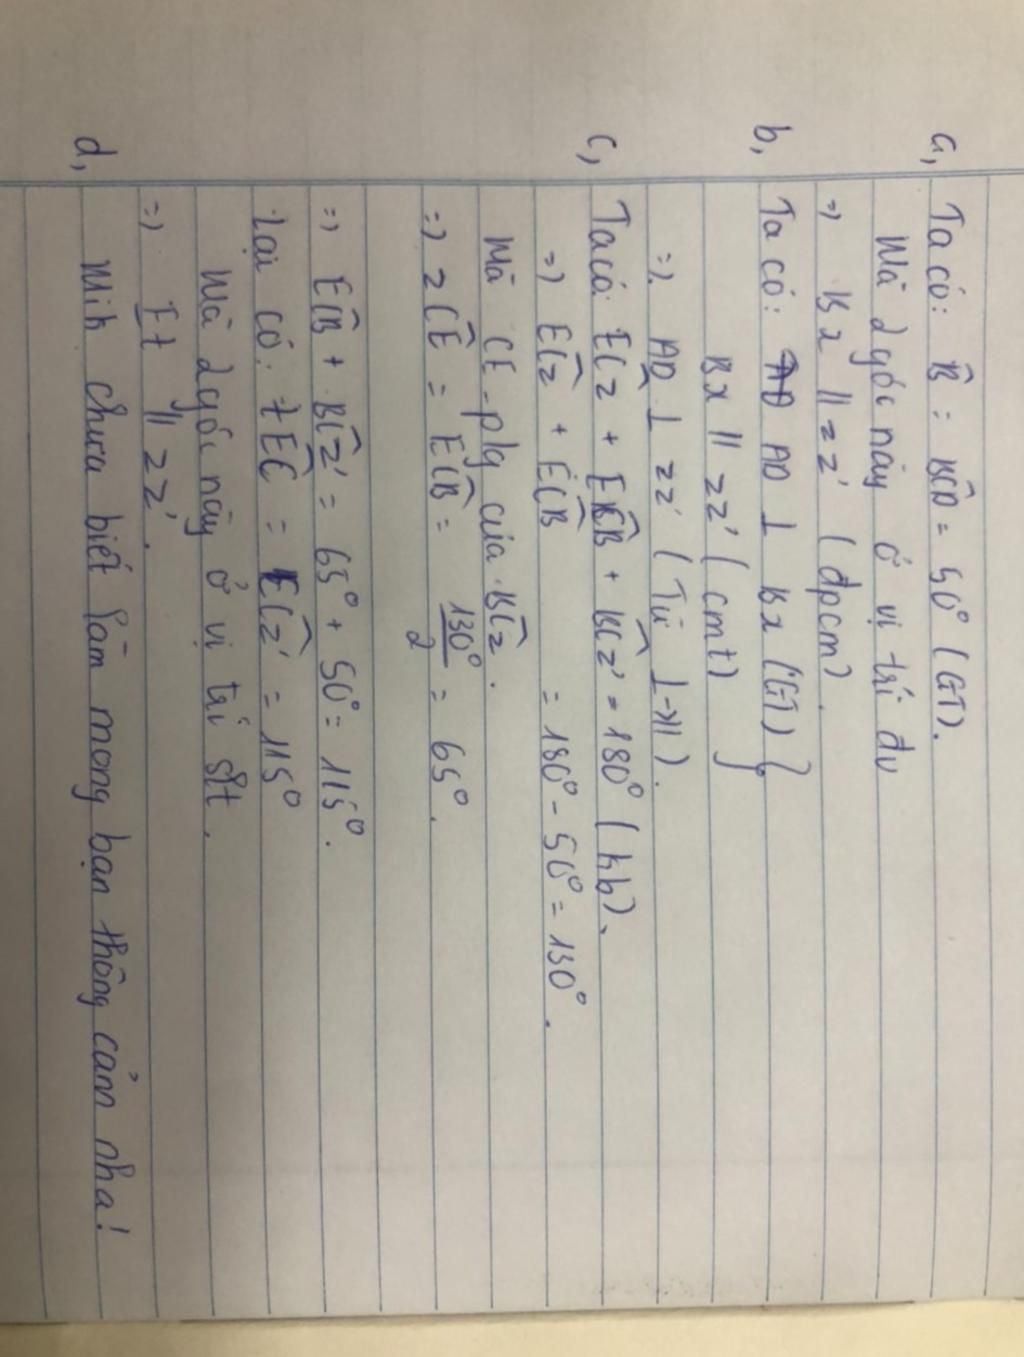 a, Ta có: B̂ = BĈD = 50° (GT).
Mà 2 góc này ở vị trí đv
=> Bx // zz' (đpcm).
b, Ta có: AD ⊥ Bx (GT) }
Bx // zz' (cmt) }
=> AD ⊥ zz' (Từ ⊥→//).
c, Ta có: EĈz + EĈB + BĈz' = 180° (kb).
=> EĈz + EĈB = 180° - 50° = 130°.
Mà CE - plg của BĈz.
=> zĈE = EĈB = 130°/2 = 65°.
=> EĈB + BĈz' = 65° + 50° = 115°.
Lại có: tÊC = EĈz' = 115°
Mà 2 góc này ở vị trí slt.
=> Et // zz'.
d, Mih chưa biết làm mong bạn thông cảm nha!